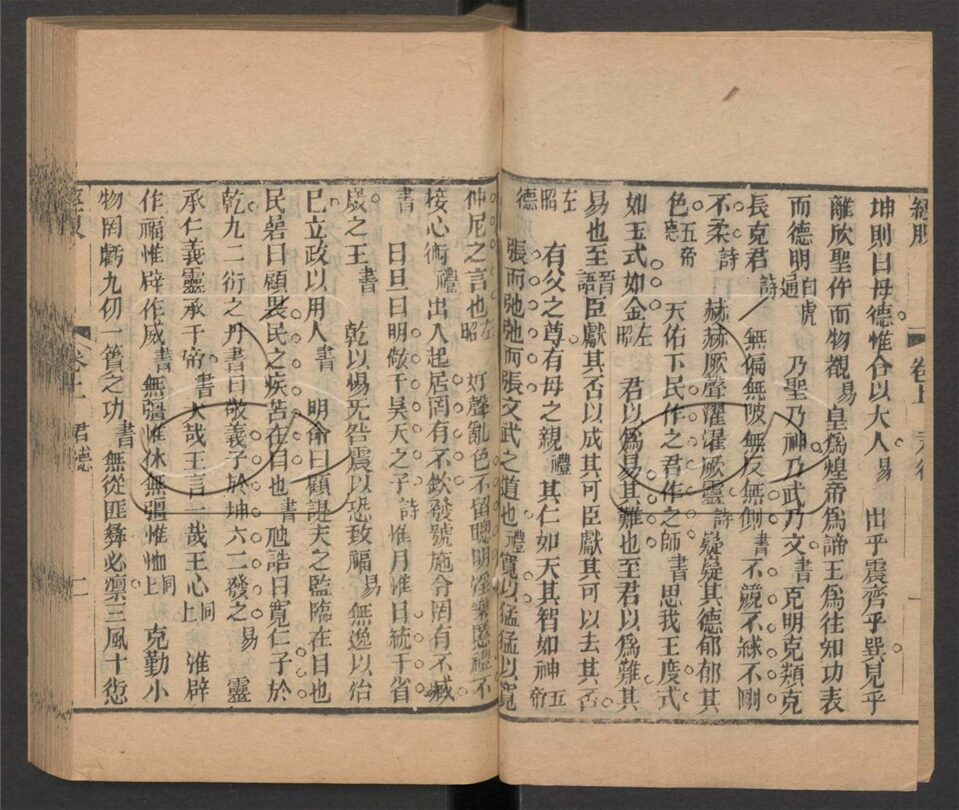 經腴 卷上
坤則曰母德惟合以大人易 出乎震齊乎巽見乎
離欣聖作而物覩易 皇爲煌帝爲諦王爲往如功表
而德明白虎通 乃聖乃神乃武乃文書 克明克類克
長克君詩 無偏無陂無反無側書 不競不絿不剛
不柔詩 赫赫厥聲濯濯厥靈詩 嶷嶷其德郁郁其
色五帝德 天佑下民作之君作之師書 思我王度式
如玉式如金左昭 君以爲易其難也至君以爲難其
易也至晉語 臣獻其否以成其可臣獻其可以去其否
左昭 有父之尊有母之親禮 其仁如天其智如神五帝
德 張而弛弛而張文武之道也禮 寬以猛猛以寬
仲尼之言也左昭 奸聲亂色不留聰明淫樂慝禮不
接心術禮 出入起居罔有不欽發號施令罔有不臧
書 日旦曰明敬于昊天之子詩 惟月惟日統于省
歲之王書 乾以惕无咎震以恐致福易 無逸以治
已立政以用人書 明命曰顧諟天之監臨在目也
民碞曰顧畏民之疾苦在目也書 虺誥曰寬仁子於
乾九二衍之丹書曰敬義子於坤六二發之易 靈
承仁義靈承于帝書 大哉王言一哉王心同上 惟辟
作福惟辟作威書 無疆惟休無疆惟恤同上 克勤小
物罔虧九仞一簣之功書 無從匪彝必凜三風十愆
卷上 君德 二